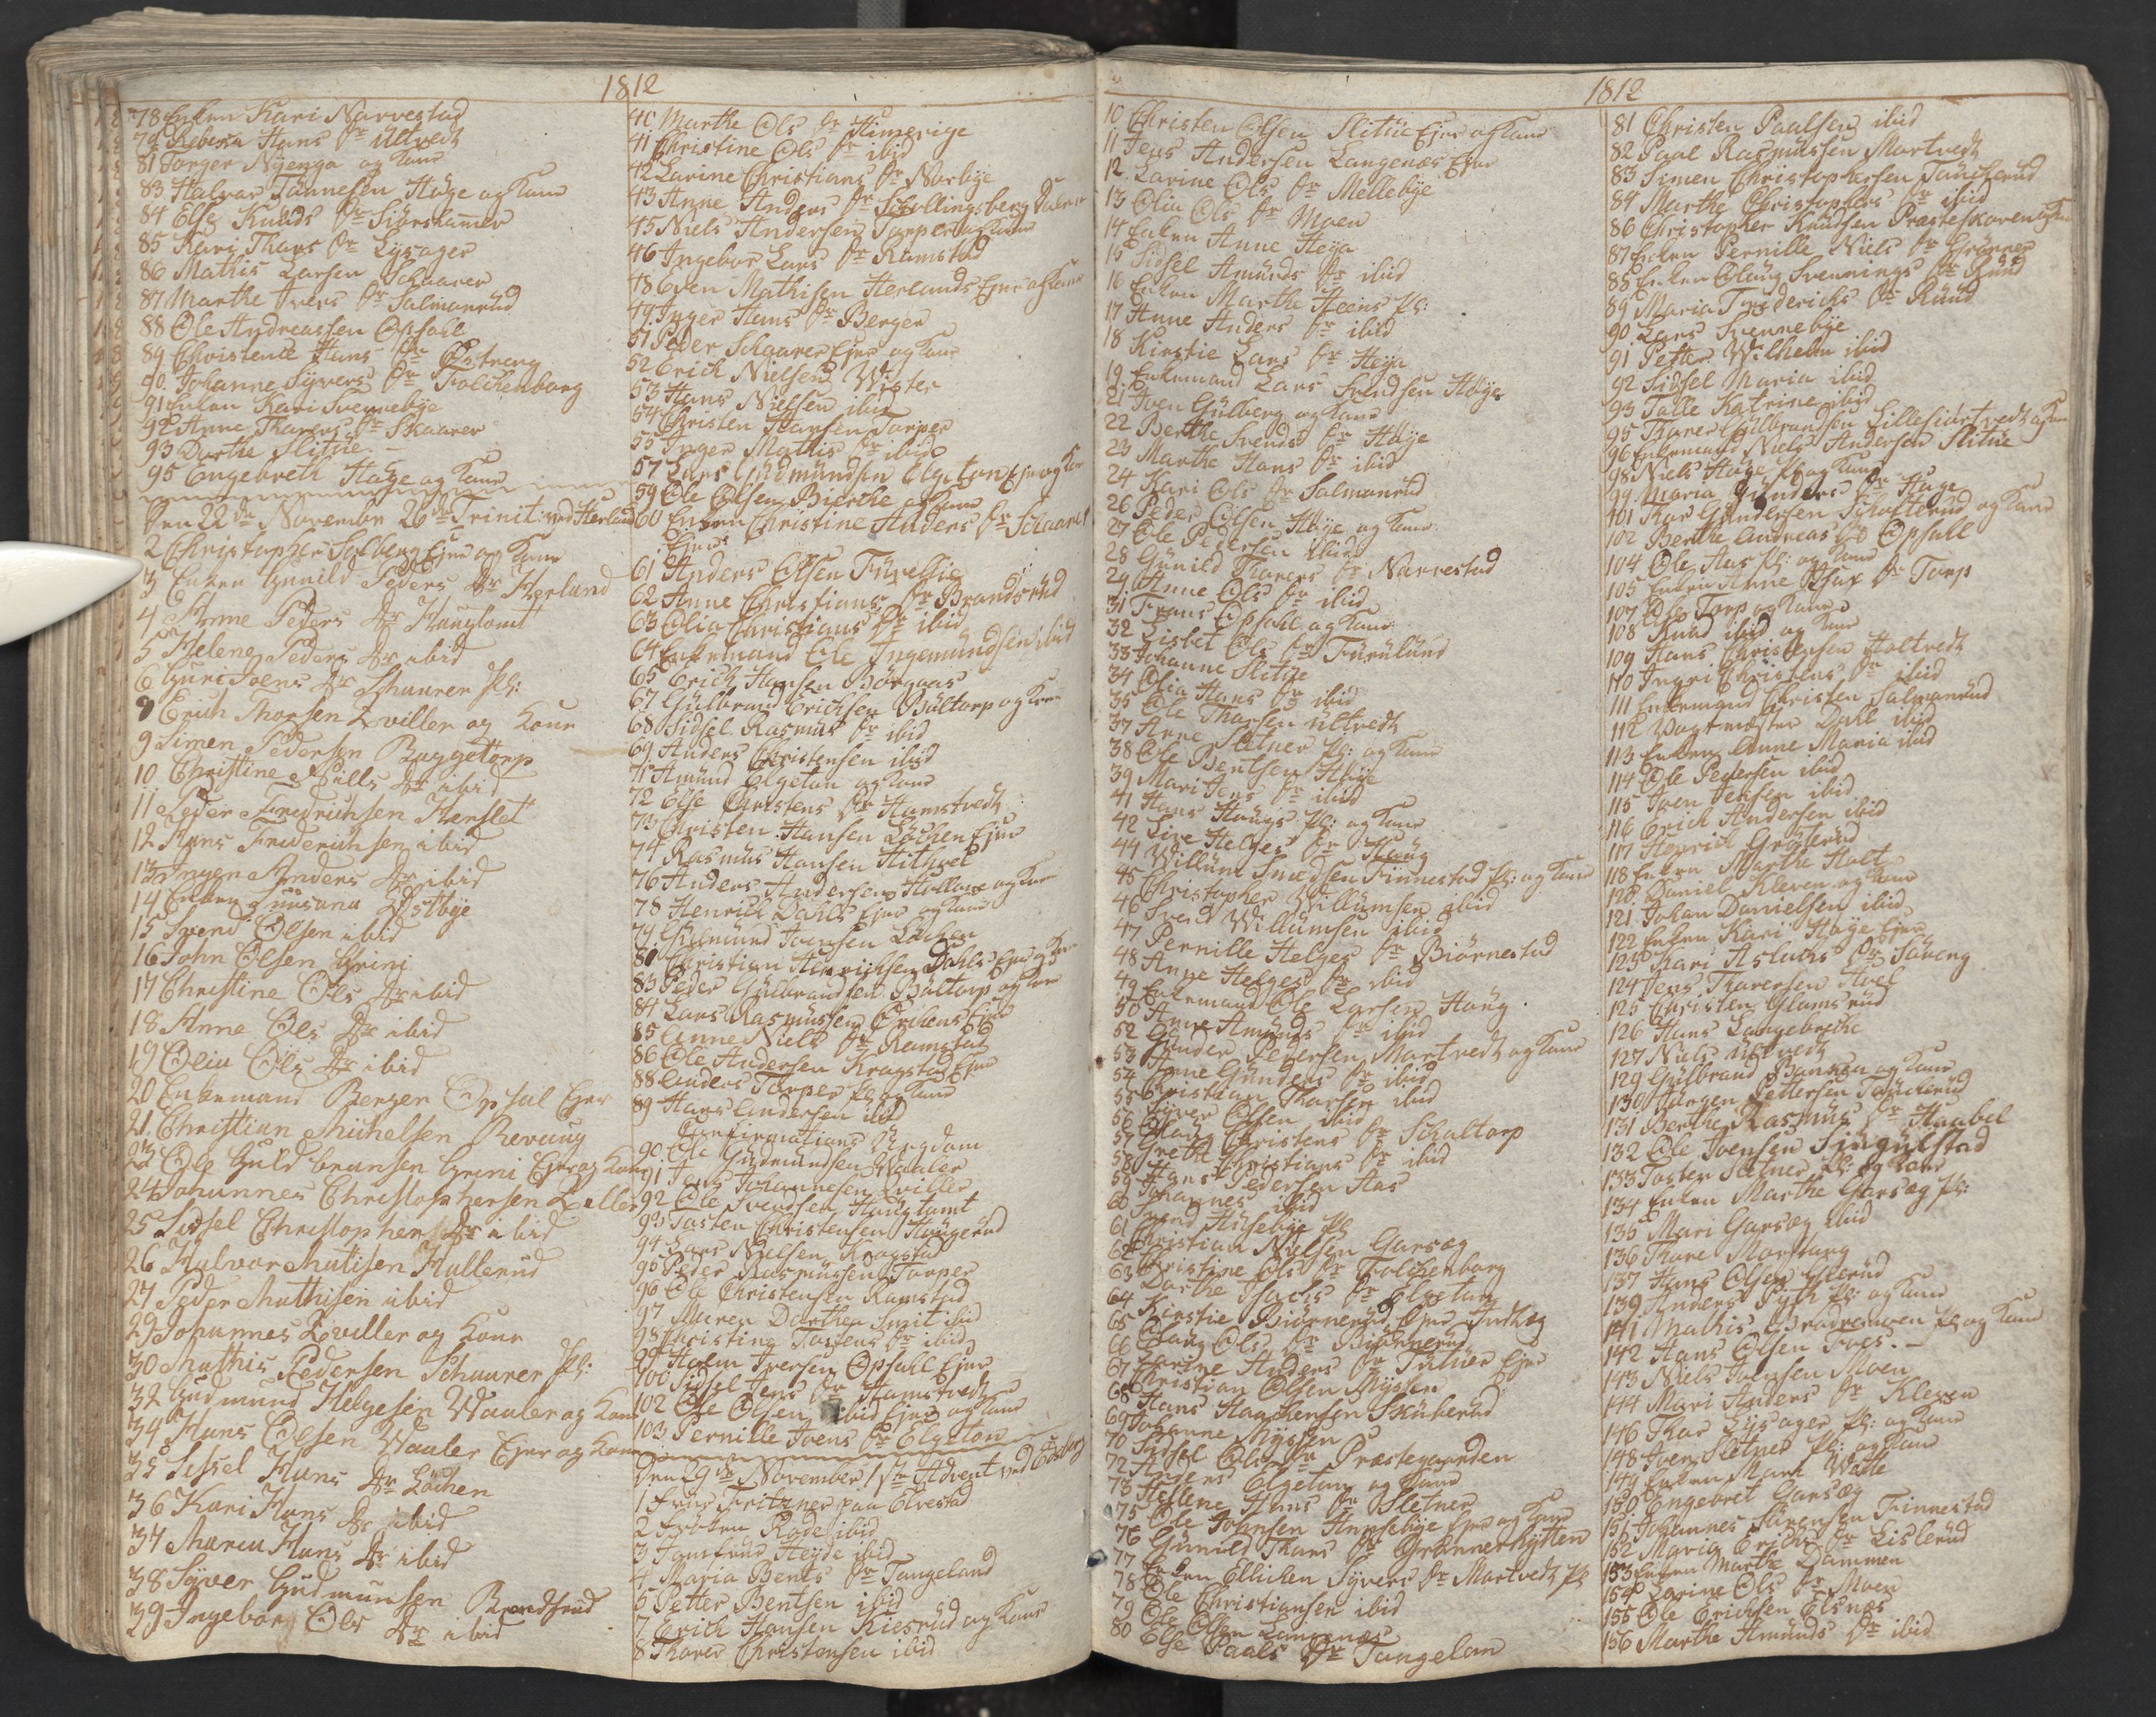 1812
78 Enken Kari Narvestad
79 Rebecca Hans Dr Ultvedt
81 Torger Nyenga og Kone
83 Halvor Tønnesen Høye og Kone
84 Else Knuds Dr
85 Kari Thors Dr Lysager
86 Mathis Larsen Schaarer
87 Marthe Ivers Dr Salmanrud
88 Ole Andreassen Opsall
89 Christense Hans Dr Østreng
90. Johanne Syvers Dr Folckenborg
91 Enken Kari Svennebye
92 Anne Thorers Dr Skaarer
93 Dorthe Slitue
95 Engebreth Høye og Kone
Den 22de November 26de Trinit: ved Herland
2 Christopher Solberg Ejer og Kone
3 Enken Gunild Peders Dr Herland
4 Anne Peders Dr Haugtomt
5 Helene Peders Dr ibid
6 Guri Joens Dr Schaarer Pl:
8 Erich Thorsen Zviller og Kone
9 Simen Pedersen Buggetorp
10 Christine Nills Dr ibid
11 Peder Fredrichsen Henslet
12 Hans Friderichsen ibid
13 Inger Anders Dr ibid
14 Enken Susana Østbye
15 Svend Olsen ibid
16 John Olsen Grini
17 Christine Ols Dr ibid
18 Anne Ols Dr ibid
19 Olia Ols Dr ibid
20 Enkemand Berger Opsal Ejer
21. Christian Michelsen Revaug
23 Ole Guldbransen Grini Ejer og Kone
24 Johannes Christophersen Zviller
25 Sidsel Christophers Dr ibid
26 Halvor Matisen Hullerud
27 Peder Mathisen ibid
29 Johannes Zviller og Kone
30 Mathis Pedersen Schaurer Pl:
32 Gudmund Helgesen Waaler og Kone
34 Hans Olsen Waaler Ejer og Kone
35 Sissel Hans Dr Løchen
36 Kari Hans Dr ibid
37 Maren Hans Dr ibid
38 Syver Gudmunsen Brandsrud
39 Ingebor Ols Dr ibid
40 Marthe Ols Dr Himerige
41 Christine Ols Dr ibid
42 Larine Christians Dr Norbye
43 Anne Anders Dr
45 Niels Andersen Torper og Kone
46 Ingebor Lars Dr Ramstad
48 Even Mathisen Herlands Ejer og Kone
49. Inger Hans Dr Berger
51 Peder Schaarer Ejer og Kone
52 Erich Nielsen Wister
53 Hans Nielsen ibid
54 Christen Hansen Torper
55 Inger Mathis Dr ibid
57 Lars Gudmundsen Elgeton Ejer og Kone
59 Ole Olsen Bierche og Kone
60 Enken Christine Anders Dr Schaarer
Ejer
61 Anders Olsen
62 Anne Christians Dr Brandsrud
63 Olia Christians Dr ibid
64 Enkemand Ole Ingemundsen ibid
65 Erich Hansen Børgaas
67 Gulbrand Erichsen Bultorp og Kone
68 Sidsel Rasmus Dr ibid
69 Anders Christensen ibid
71 Amund Elgeton og Kone
72 Else Christens Dr Hamstvedt
73 Christen Hansen Løchen Ejer
74 Rasmus Hansen
76 Anders Andersen og Kone
78 Henrich Dahls Ejer og Kone
79. Gudmund Joensen Løchen
81 Christian Henrichsen Dahls Ejer og Kone
83 Peder Gulbrandsen Bultorp og Kone
84 Lars Rasmussen Ejer
85 Anne Niels Dr Ramstad
86 Ole Andersen Kragstad Ejer
88 Anders Torper Pl og Kone
89 Hans Andersen ibid
Confirmations Ungdom
90. Ole Gudmundsen Waaler
91 Jens Johannesen Zviller
92 Ole Svendsen Haugtomt
93 Tosten Christensen Haugerud
94 Lars Nielsen Kragstad
95 Peder Rasmussen Torper
96 Ole Christensen Ramstad
97 Maren Dorthea Smit ibid
98 Christine Tostens Dr ibid
99 Holm Iversen Opsall Ejer
100 Sidsel Jens Dr Hamstvedt
102 Ole Olsen ibid Ejer og Kone
103 Pernille Joens Dr Elgeton
Den 29de November 1ste Advent ved Eidsberg
1 Frue Fritzner paa Elvestad
2 Frøken Rode ibid
3 Jomfrue Heyde ibid
4 Maria Bents Dr Tangeland
5 Petter Bentsen ibid
7 Erich Hansen Kiesrud og Kone
8 Thorer Christensen ibid
1812
10 Christen Olsen Slitue Ejer og Kone
11 Jens Andersen Langenæs Ejer
12. Larine Ols Dr Mellebye
13 Olia Ols Dr Moen
14 Enken Anne Heya
15 Sidsel Amunds Dr ibid
16 Enken Marthe Heens Pl:
17 Anne Anders Dr ibid
18 Kirstie Lars Dr Heya
19. Enkemand Lars Svendsen Høye
21 Iven Gulberg og Kone
22 Berthe Svends Dr Høye
23 Marthe Hans Dr ibid
24 Kari Ols Dr Salmanrud
26 Peder Olsen Høye og Kone
27 Ole Pedersen ibid
28 Gunild Thorers Dr Narvestad
29. Anne Ols Dr ibid
31 Frans Opsall og Kone
32 Lisbet Ols Dr Furulund
33 Johanne Slitue
34 Olia Hans Dr ibid
35 Ole Thorsen Ultvedt
37 Arne Sletner Pl: og Kone
38 Ole Bentsen Høye
39 Mari Jens Dr ibid
41 Hans Haugs Pl: og Kone
42 Live Helges Dr Haug
44 Willum Finnestad Pl: og Kone
45 Christopher Willumsen ibid
46 Svend Willumsen ibid
47 Pernille Helges Dr Biørnestad
48 Anne Helges Dr ibid
49 Enkemand Ole Larsen Haug
50 Anne Amunds Dr ibid
52 Gunder Pedersen Martvedt og Kone
53 Anne Gunders Dr ibid
54 Christian Thorsen ibid
55 Syver Olsen ibid
56 Olaug Christens Dr Schaltorp
57 Grethe Christians Dr ibid
58 Hans Pedersen Aas
59 Johannes ibid
60 Svend Husebye Pl
61 Christian Nielsen Garseg
62 Christine Ols Dr Folckenborg
63 Dorthe Isachs Dr Elgeton
64 Kirstie Biørnerud
65 Olaug Ols Dr Biørnerud
66 Karine Anders Dr Ejer
67 Christian Olsen Mysen
68 Hans Haachensen Skuberud
69 Johanne Mysen
70 Sidsel Ols Dr Præstegaarden
72 Anders Elgeton og Kone
73 Hellene Hans Dr Sletner
75 Ole Johnsen Ejer og Kone
76 Gunild Thors Dr
77 Enken Ellichen Syvers Dr Martvedt Pl
78 Ole Christiansen ibid
79 Ole Olsen Langenæs
80 Else Paals Dr Tangelan
81 Christen Paalsen ibid
82 Paal Rasmussen Martvedt
83 Simen Christophersen
84 Marthe Christophers Dr ibid
86 Christopher Knudsen og Kone
87 Enken Pernille Niels Dr
88 Enken Olaug Svennings Dr Ruud
89 Maria Frederichs Dr Ruud
90. Lars Svennebye
91. Petter Wilhelm ibid
92 Sidsel Maria ibid
93 Talle Katrine ibid
95 Thorer Gulbrandsen og Kone
96 Enkemand Niels Andersen Slitue
98 Niels Høye Pl og Kone
99 Maria Gunders Dr Høye
101 Thor Gundersen og Kone
102 Berthe Andreas Dr Opsall
104 Ole Aas Pl: og Kone
105 Enken Anne Dr Torp
107 Ole Torp og Kone
108 Knud ibid og Kone
109 Hans Christensen Holtvedt
110 Ingri Christens Dr ibid
111 Enkemand Christen Salmanrud
112 Vagtmester Dahl ibid
113 Enken Anne Maria ibid
114 Ole Pedersen ibid
115 Iven Jensen ibid
116 Erich Andersen ibid
117 Henrich
118 Enken Marthe Holt
120. Daniel Kleven og Kone
121. Johan Danielsen ibid
122 Enken Kari Høye Ejer
123 Kari Aslachs Dr
124 Jens Thorersen
125 Christen Glomsrud
126 Hans Langebreche
127 Niels Ultvedt
129 Gulbrand og Kone
130 Pettersen
131 Berthe Rasmus Dr
132 Ole Joensen
133 Tosten Sletner Pl: og Kone
134 Enken Marthe Garseg Pl:
135 Mari Garseg ibid
136 Thore
137 Hans Olsen
139 Anders Pl: og Kone
141 Mathis Pl og Kone
142 Hans Olsen Foss.
143 Niels Joensen Moen
144 Mari Anders Dr Kleven
146 Thor Lysager Pl: og Kone
148 Iven Sletner Pl: og Kone
149 Enken
150 Engebret Garseg
151 Johannes Sørensen Finnestad
152 Maria Erichs Dr Lislerud
153 Enken Marthe Dammen
154 Larine Ols Dr Moen
155 Ole Erichsen
156 Marthe Amunds Dr ibid